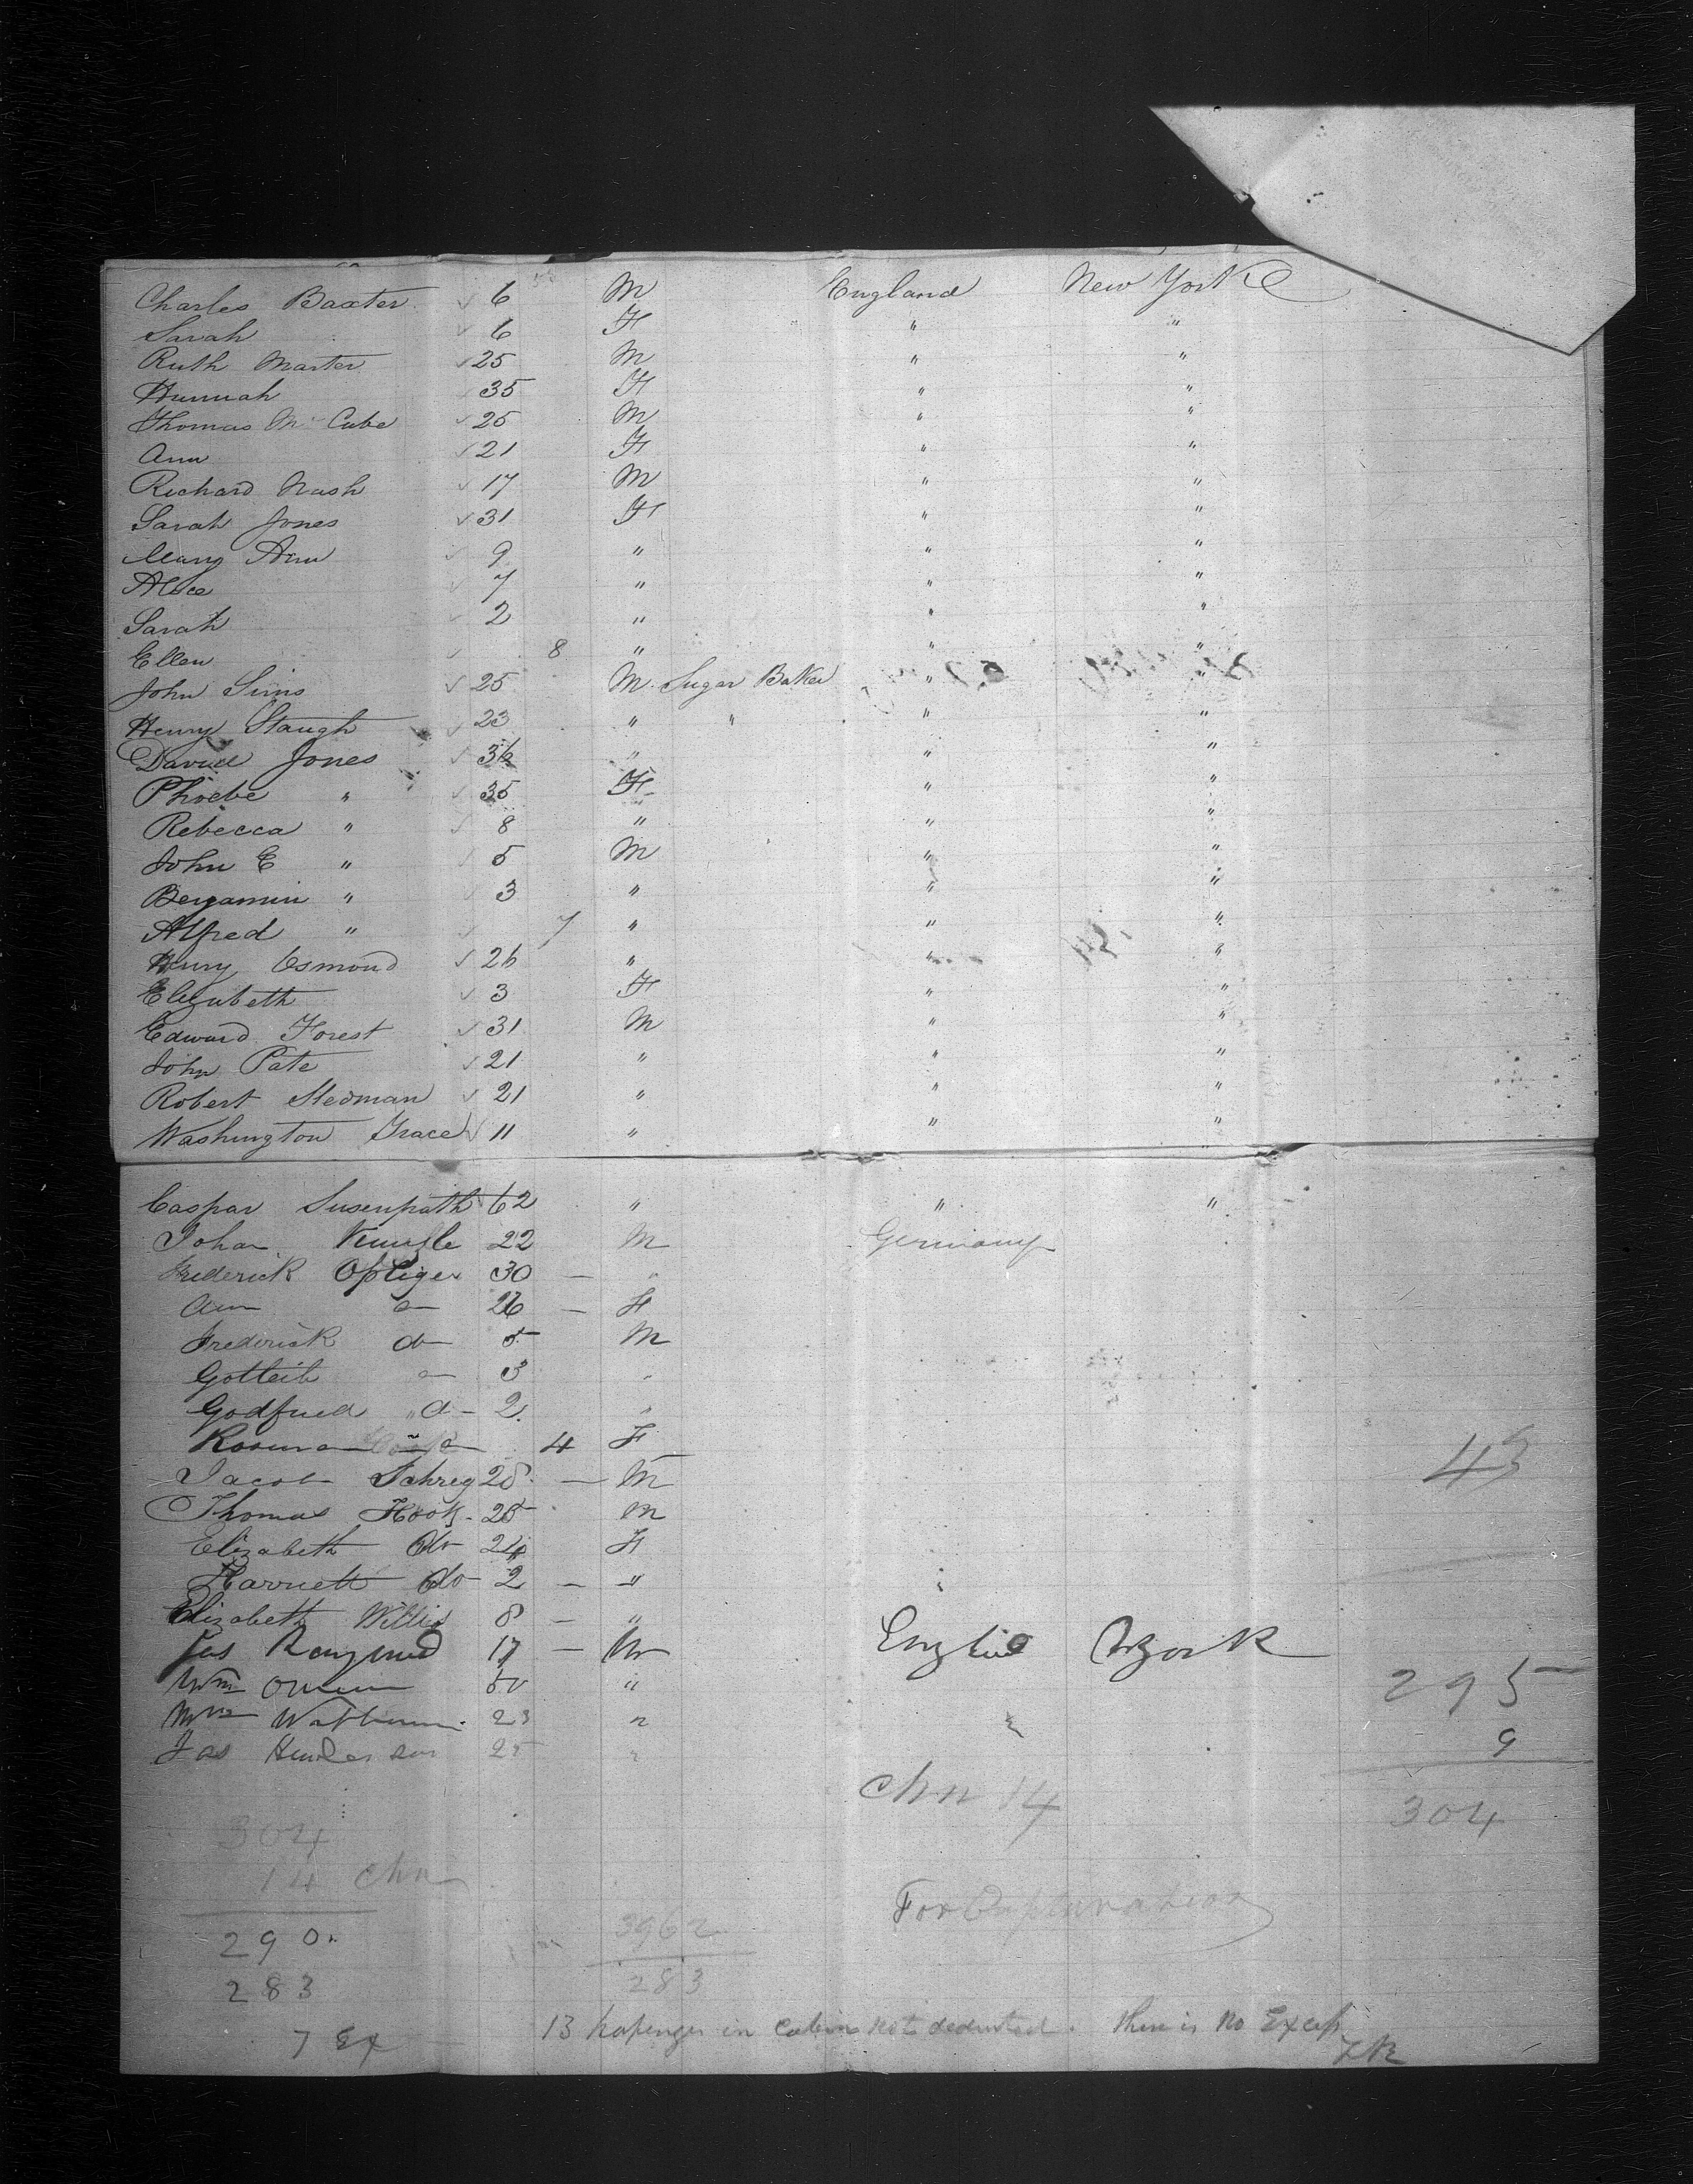 Charles Baxter 6 M England New York
Sarah 6 F " "
Ruth Marter 25 M " "
Hannah 35 F " "
Thomas McCabe 25 M " "
Ann 21 F " "
Richard Nash 17 M " "
Sarah Jones 31 F " "
Mary Ann 9 " " "
Alice 7 " " "
Sarah 2 " " "
Ellen 8 " " "
John Sims 25 M Sugar Baker " "
Henry Staugh 23 " " " "
David Jones 36 " " "
Phoebe " 35 F " "
Rebecca " 8 " " "
John E " 5 M " "
Benjamin " 3 " " "
Alfred " 7 " " "
Henry Osmond 26 " " "
Elizabeth 3 F " "
Edward Forest 31 M " "
John Pate 21 " " "
Robert Stedman 21 " " "
Washington Grace 11 " " "
Caspar Susenpath 62 " " "
Johan 22 M Germany
Frederick Opliger 30 — "
Ann 26 — F
Frederick do 5 M
Gotleib 3 "
Godfried " do 2 "
4 F
Jacob Fahreg 28 — M
43
Thomas Hook 25 M
Elizabeth do 24 F
Harriett do 2 — "
Elizabeth Willis 8 — "
Jas 17 — M York
295
Wm 50 "
Wm 23 "
9
Jas Henderson 25 "
Chn 14
304
304
14 Chn
For Explanation
290
3962
283
283
7 Ex
13 passenger in Cabin not deducted. There is No Excess